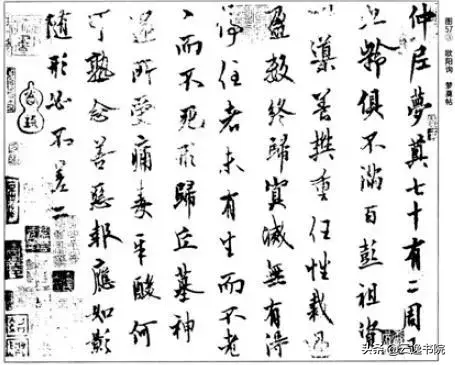 图57③ 欧阳询 梦奠帖
仲尼夢奠七十有二周
齡俱不滿百彭祖資
導養樊重任性裁過
盈數終歸冥滅無有得
停住者未有生而不老
而不死形歸丘墓神
還所受痛毒辛酸何
可熟念善惡報應如影
隨形必不差二
头条@云逸书院